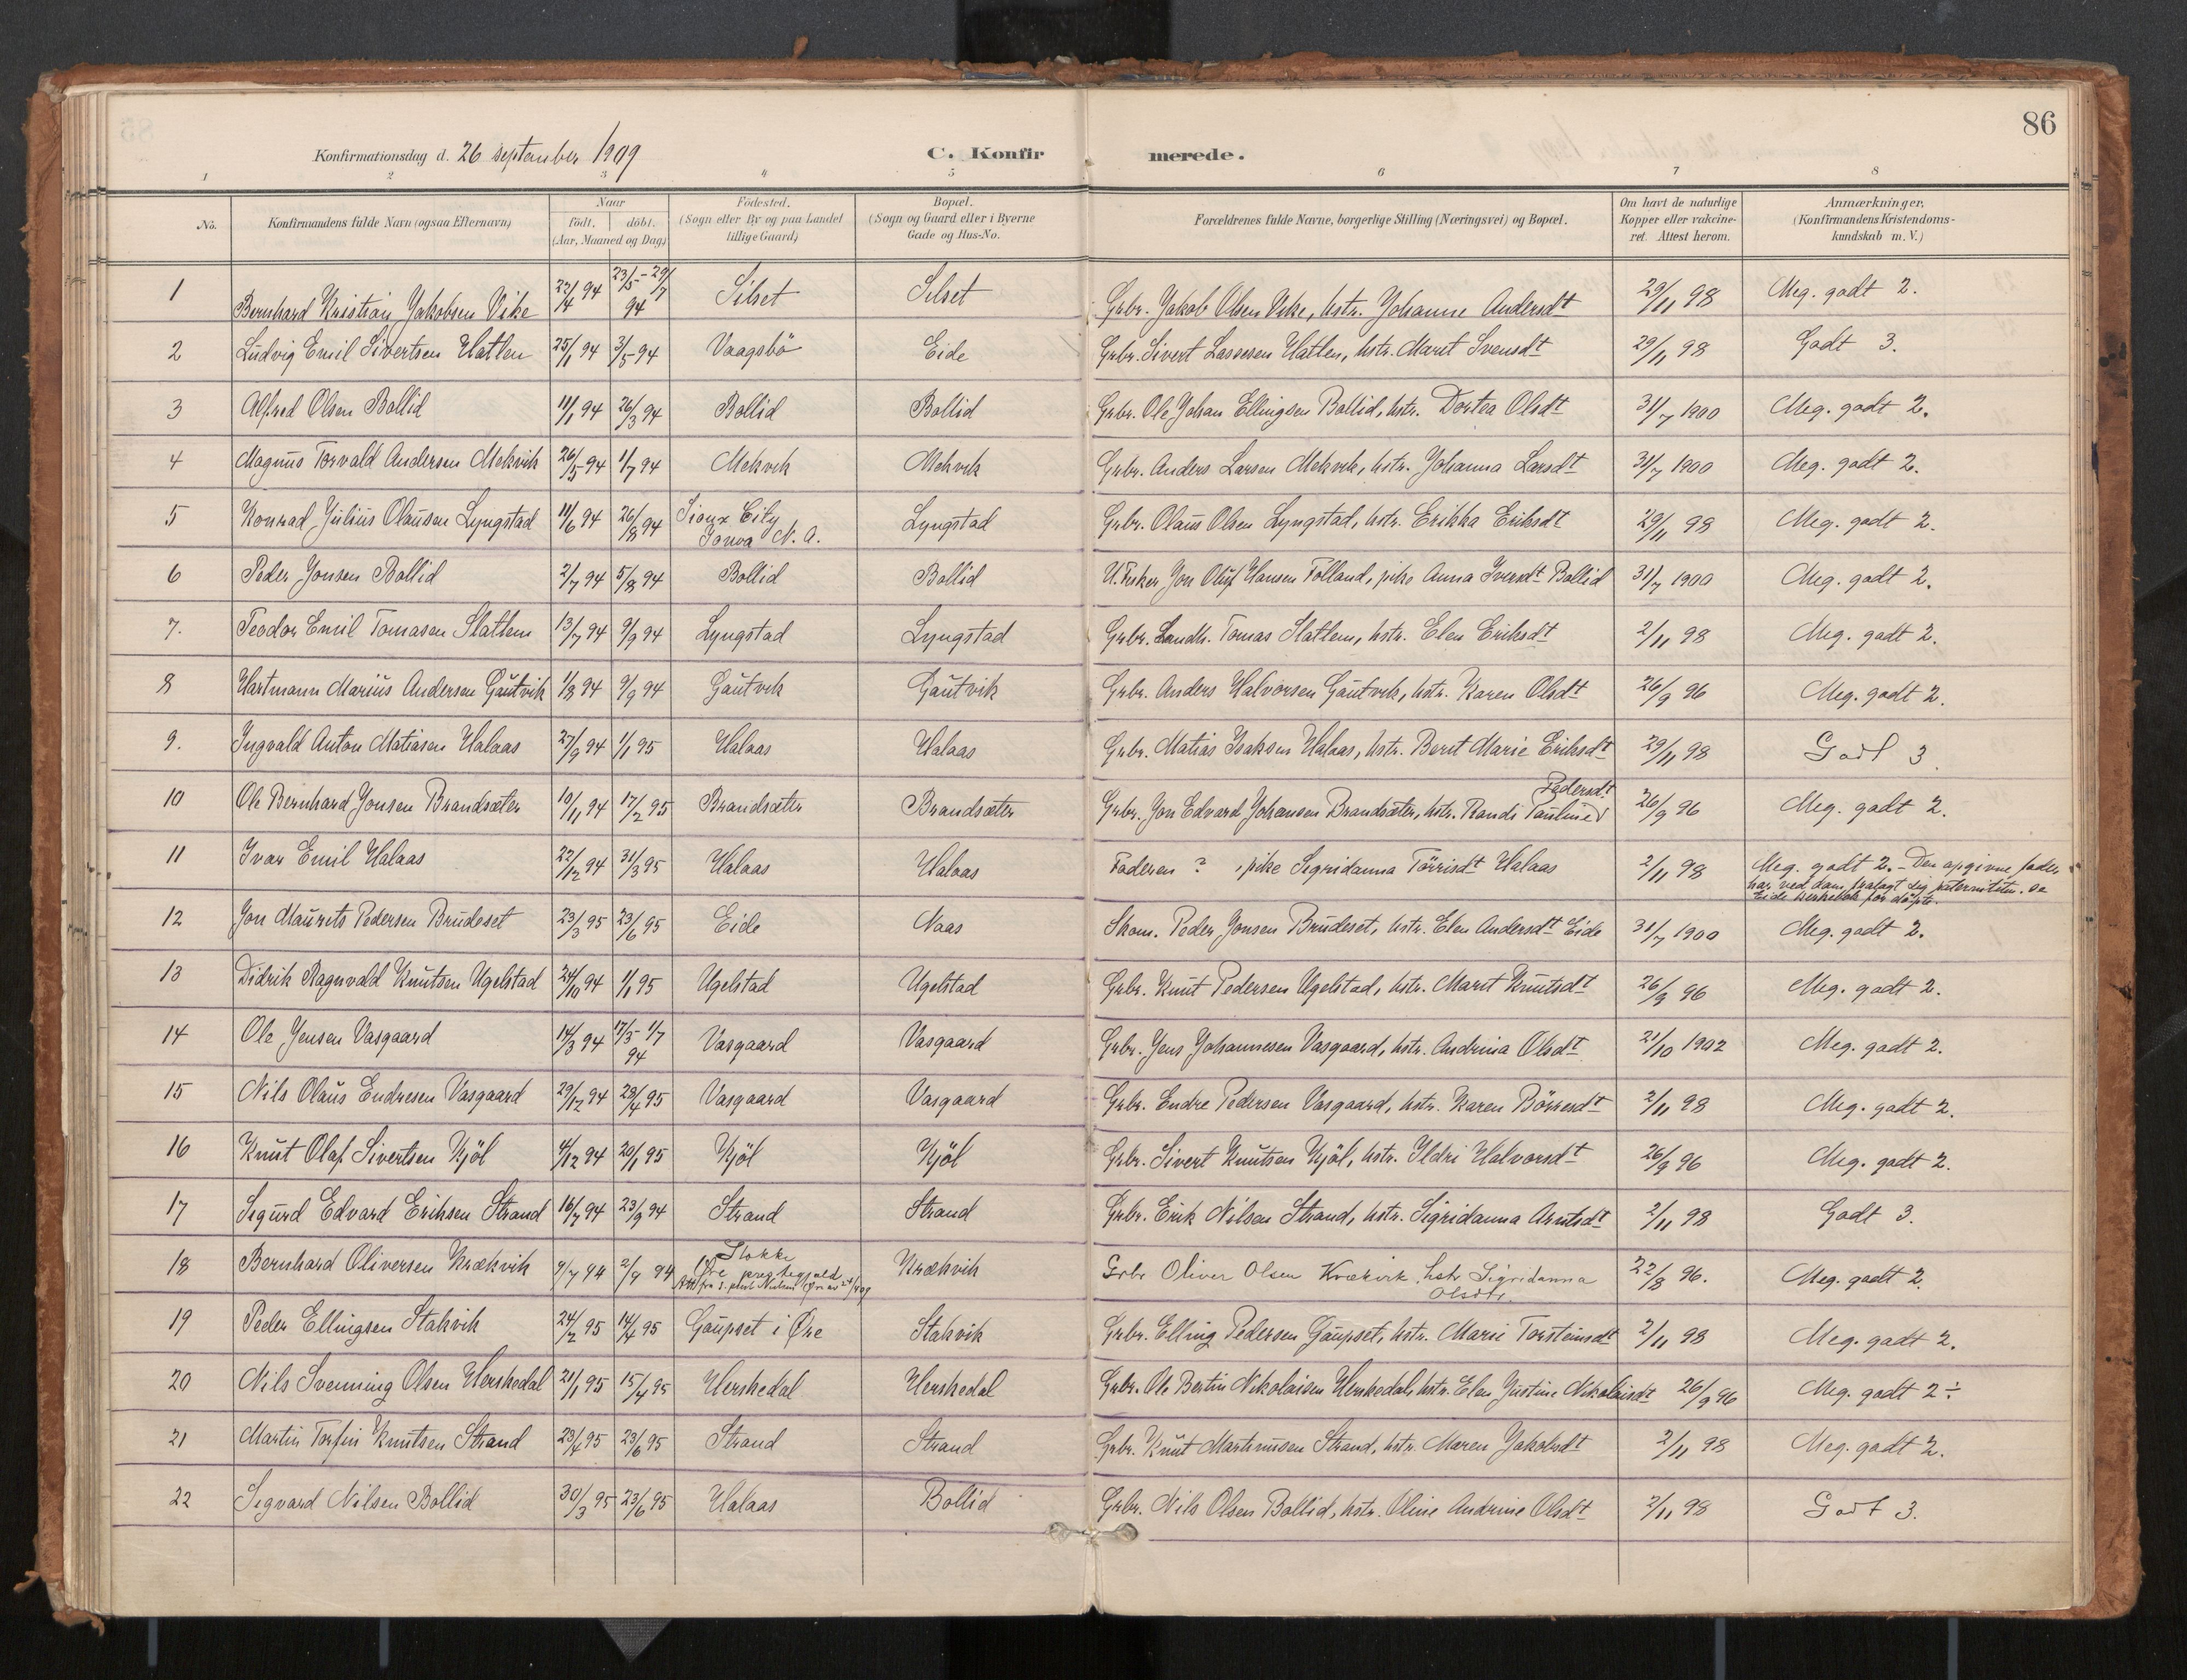 86
Konfirmationsdag d. 26 september 1909 C. Konfirmerede.
1 2 3 4 5 6 7 8
No. Konfirmandens fulde Navn (ogsaa Efternavn) Naar født. døbt. (Aar, Maaned og Dag) Fødested. (Sogn eller By og paa Landet tillige Gaard) Bopæl. (Sogn og Gaard eller i Byerne Gade og Hus-No. Forældrenes fulde Navne, borgerlige Stilling (Næringsvei) og Bopæl. Om havt de naturlige Kopper eller vakcineret. Attest herom. Anmærkninger, (Konfirmandens Kristendomskundskab m. V.)
1 Bernhard Kristian Jakobsen Vike 22/4 94 23/5 - 29/7 94 Silset Silset Grbr. Jakob Olsen Vike, hstr. Johanne Andersdt 29/11 98 Meg. godt 2.
2 Ludvig Emil Sivertsen Hatlen 25/1 94 3/5 94 Vaagsbö Eide Grbr. Sivert Lassesen Hatlen, hstr. Marit Svensdt 29/11 98 Godt 3.
3 Alfred Olsen Bollid 11/1 94 26/3 94 Bollid Bollid Grbr. Ole Johan Ellingsen Bollid, hstr. Dortea Olsdt 31/7 1900 Meg. godt 2.
4 Magnus Torvald Andersen Mekvik 26/5 94 1/7 94 Mekvik Mekvik Grbr. Anders Larsen Mekvik, hstr. Johanna Larsdt 31/7 1900 Meg. godt 2.
5 Konrad Julius Olausen Lyngstad 11/6 94 26/8 94 Sioux City Iowa N. A. Lyngstad Grbr. Olaus Olsen Lyngstad, hstr. Erikka Eriksdt 29/11 98 Meg. godt 2.
6 Peder Jonsen Bollid 2/7 94 5/8 94 Bollid Bollid U. Fisker Jon Oluf Hansen Tolland, pike Anna Iversdt Bollid 31/7 1900 Meg. godt 2.
7. Teodor Emil Tomasen Slatlem 13/7 94 9/9 94 Lyngstad Lyngstad Grbr. Landh. Tomas Slatlem, hstr. Elen Eriksdt 2/11 98 Meg. godt 2.
8 Hartmann Marius Andersen Gautvik 1/8 94 9/9 94 Gautvik Gautvik Grbr. Anders Halvorsen Gautvik, hstr. Karen Olsdt 26/9 96 Meg. godt 2.
9. Ingvald Anton Matiasen Halaas 27/9 94 1/1 95 Halaas Halaas Grbr. Matias Isaksen Halaas, hstr. Berit Marie Eriksdt 29/11 98 Godt 3.
10 Ole Bernhard Jonsen Brandsæter 10/11 94 17/2 95 Brandsæter Brandsæter Grbr. Jon Edvard Johansen Brandsæter, hstr. Randi Pauline Pedersdt 26/9 96 Meg. godt 2.
11 Ivar Emil Halaas 22/12 94 31/3 95 Halaas Halaas Faderen ? , pike Sigridanna Törrisdt Halaas 2/11 98 Meg. godt 2. - Den opgivne fader har ved dom fralagt sig paterniteten. se Eide kirkebok for döpte.
12 Jon Maurits Pedersen Brudeset 23/3 95 23/6 95 Eide Naas Skom. Peder Jonsen Brudeset, hstr. Elen Andersdt Eide 31/7 1900 Meg. godt 2.
13 Didrik Ragnvald Knutsen Ugelstad 24/10 94 1/1 95 Ugelstad Ugelstad Grbr. Knut Pedersen Ugelstad, hstr. Marit Knutsdt 26/9 96 Meg. godt 2.
14 Ole Jensen Vasgaard 14/3 94 17/3 - 1/7 94 Vasgaard Vasgaard Grbr. Jens Johannesen Vasgaard, hstr. Andrina Olsdt 21/10 1902 Meg. godt 2.
15 Nils Olaus Endresen Vasgaard 29/12 94 28/4 95 Vasgaard Vasgaard Grbr. Endre Pedersen Vasgaard, hstr. Karen Börresdt 2/11 98 Meg. godt 2.
16 Knut Olaf Sivertsen Kjöl 4/12 94 20/1 95 Kjöl Kjöl Grbr. Sivert Knutsen Kjöl, hstr. Ildri Halvorsdt 26/9 96 Meg. godt 2.
17 Sigurd Edvard Eriksen Strand 16/7 94 23/9 94 Strand Strand Grbr. Erik Nilsen Strand, hstr. Sigridanna Arntsdt 2/11 98 Godt 3.
18 Bernhard Oliversen Krækvik 9/7 94 2/9 94 Stokke Øre prestegjeld Krækvik Grbr Oliver Olsen Krækvik, hstr Sigridanna Olsdtr. 22/8 96. Meg. godt 2.
19 Peder Ellingsen Stakvik 24/2 95 14/4 95 Gaupset i Øre Stakvik Grbr. Elling Pedersen Gaupset, hstr. Marie Torsteinsdt 2/11 98 Meg. godt 2.
20 Nils Svenning Olsen Herskedal 21/1 95 15/4 95 Herskedal Herskedal Grbr. Ole Bertin Nikolaisen Herskedal, hstr. Elen Justine Nikolaisdt 26/9 96 Meg. godt 2 ÷
21 Martin Torfin Knutsen Strand 23/4 95 23/6 95 Strand Strand Grbr. Knut Martinusen Strand, hstr. Maren Jakobsdt 2/11 98 Meg. godt 2.
22 Sigvard Nilsen Bollid 30/3 95 23/6 95 Halaas Bollid Grbr. Nils Olsen Bollid, hstr. Oline Andrine Olsdt 2/11 98 Godt 3.